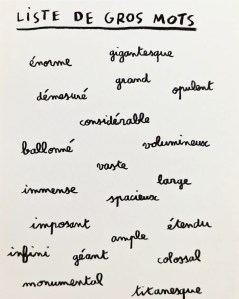 LISTE DE GROS MOTS
gigantesque
énorme
grand
opulent
démesuré
considérable
ballonné
volumineux
vaste
large
immense
spacieux
imposant
étendu
ample
infini
géant
colossal
monumental
titanesque